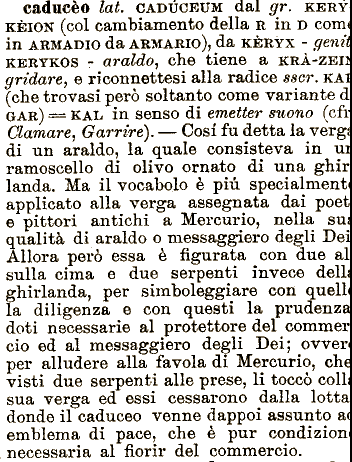 caducèo lat. CADÚCEUM dal gr. KERY
KÈION (col cambiamento della R in D com
in ARMADIO da ARMARIO), da KÈRYX - genit
KERYKOS - araldo, che tiene a KRÀ-ZEIN
gridare, e riconnettesi alla radice sscr. KAR
(che trovasi però soltanto come variante d
GAR) = KAL in senso di emetter suono (cfr
Clamare, Garrire). — Cosí fu detta la verga
di un araldo, la quale consisteva in un
ramoscello di olivo ornato di una ghir
landa. Ma il vocabolo è piú specialmente
applicato alla verga assegnata dai poet
e pittori antichi a Mercurio, nella sua
qualità di araldo o messaggero degli Dei
Allora però essa è figurata con due al
sulla cima e due serpenti invece della
ghirlanda, per simboleggiare con quelle
la diligenza e con questi la prudenza
doti necessarie al protettore del commer
cio ed al messaggero degli Dei; ovver
per alludere alla favola di Mercurio, che
visti due serpenti alle prese, li toccò colla
sua verga ed essi cessarono dalla lotta
donde il caduceo venne dappoi assunto ad
emblema di pace, che è pur condizion
necessaria al fiorir del commercio.